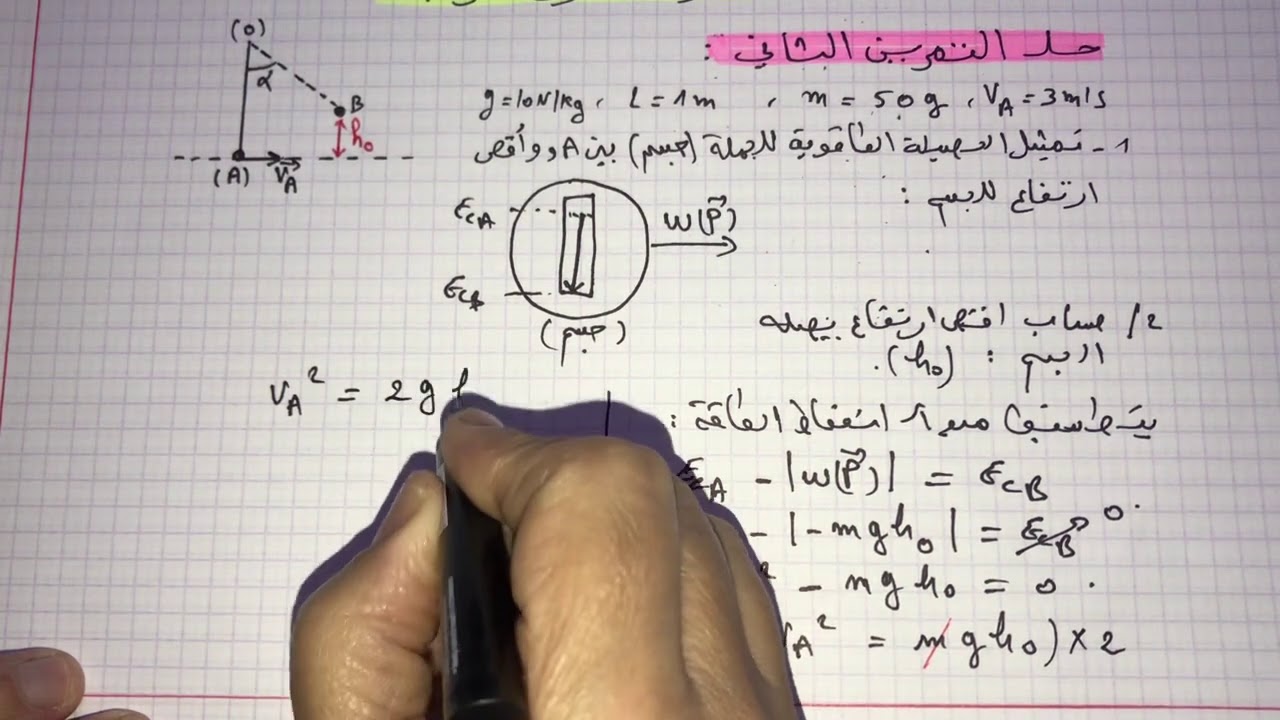 حل التمرين الثاني :
g = 10N/kg ، L = 1m ، m = 50g ، V_A = 3m/s
1 - تمثيل الحصيلة الطاقوية للجملة (جسم) بين A و وأقصى
ارتفاع للجسم :
(O)
α
B
h₀
(A)
V⃗_A
E_cA
W(P⃗)
E_cB
(جسم)
2/ حساب اقصى ارتفاع يصله
الجسم : (h₀).
مبدأ انحفاظ الطاقة :
E_cA - |W(P⃗)| = E_cB
- |-mgh₀| = E_cB 0.
² - mgh₀ = 0.
V_A² = mgh₀) × 2
V_A² = 2g